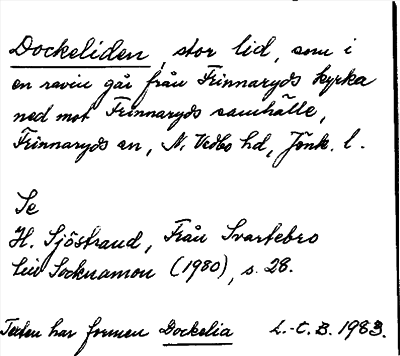 Dockeliden, stor lid, som i
en ravin går från Frinnaryds kyrka
ned mot Frinnaryds samhälle,
Frinnaryds sn, N. Vedbo hd, Jönk. l.
Se
H. Sjöstrand, Från Svartebro
till Socknamon (1980), s. 28.
Texten har formen Dockelia L.-E. B. 1983.